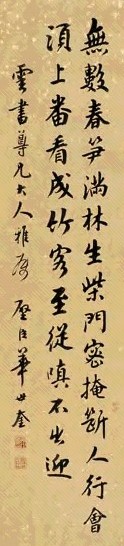 無數春笋滿林生柴門密掩斷人行會
須上番看成竹客至從嗔不出迎
雲書尊兄大人雅屬 璧臣華世奎